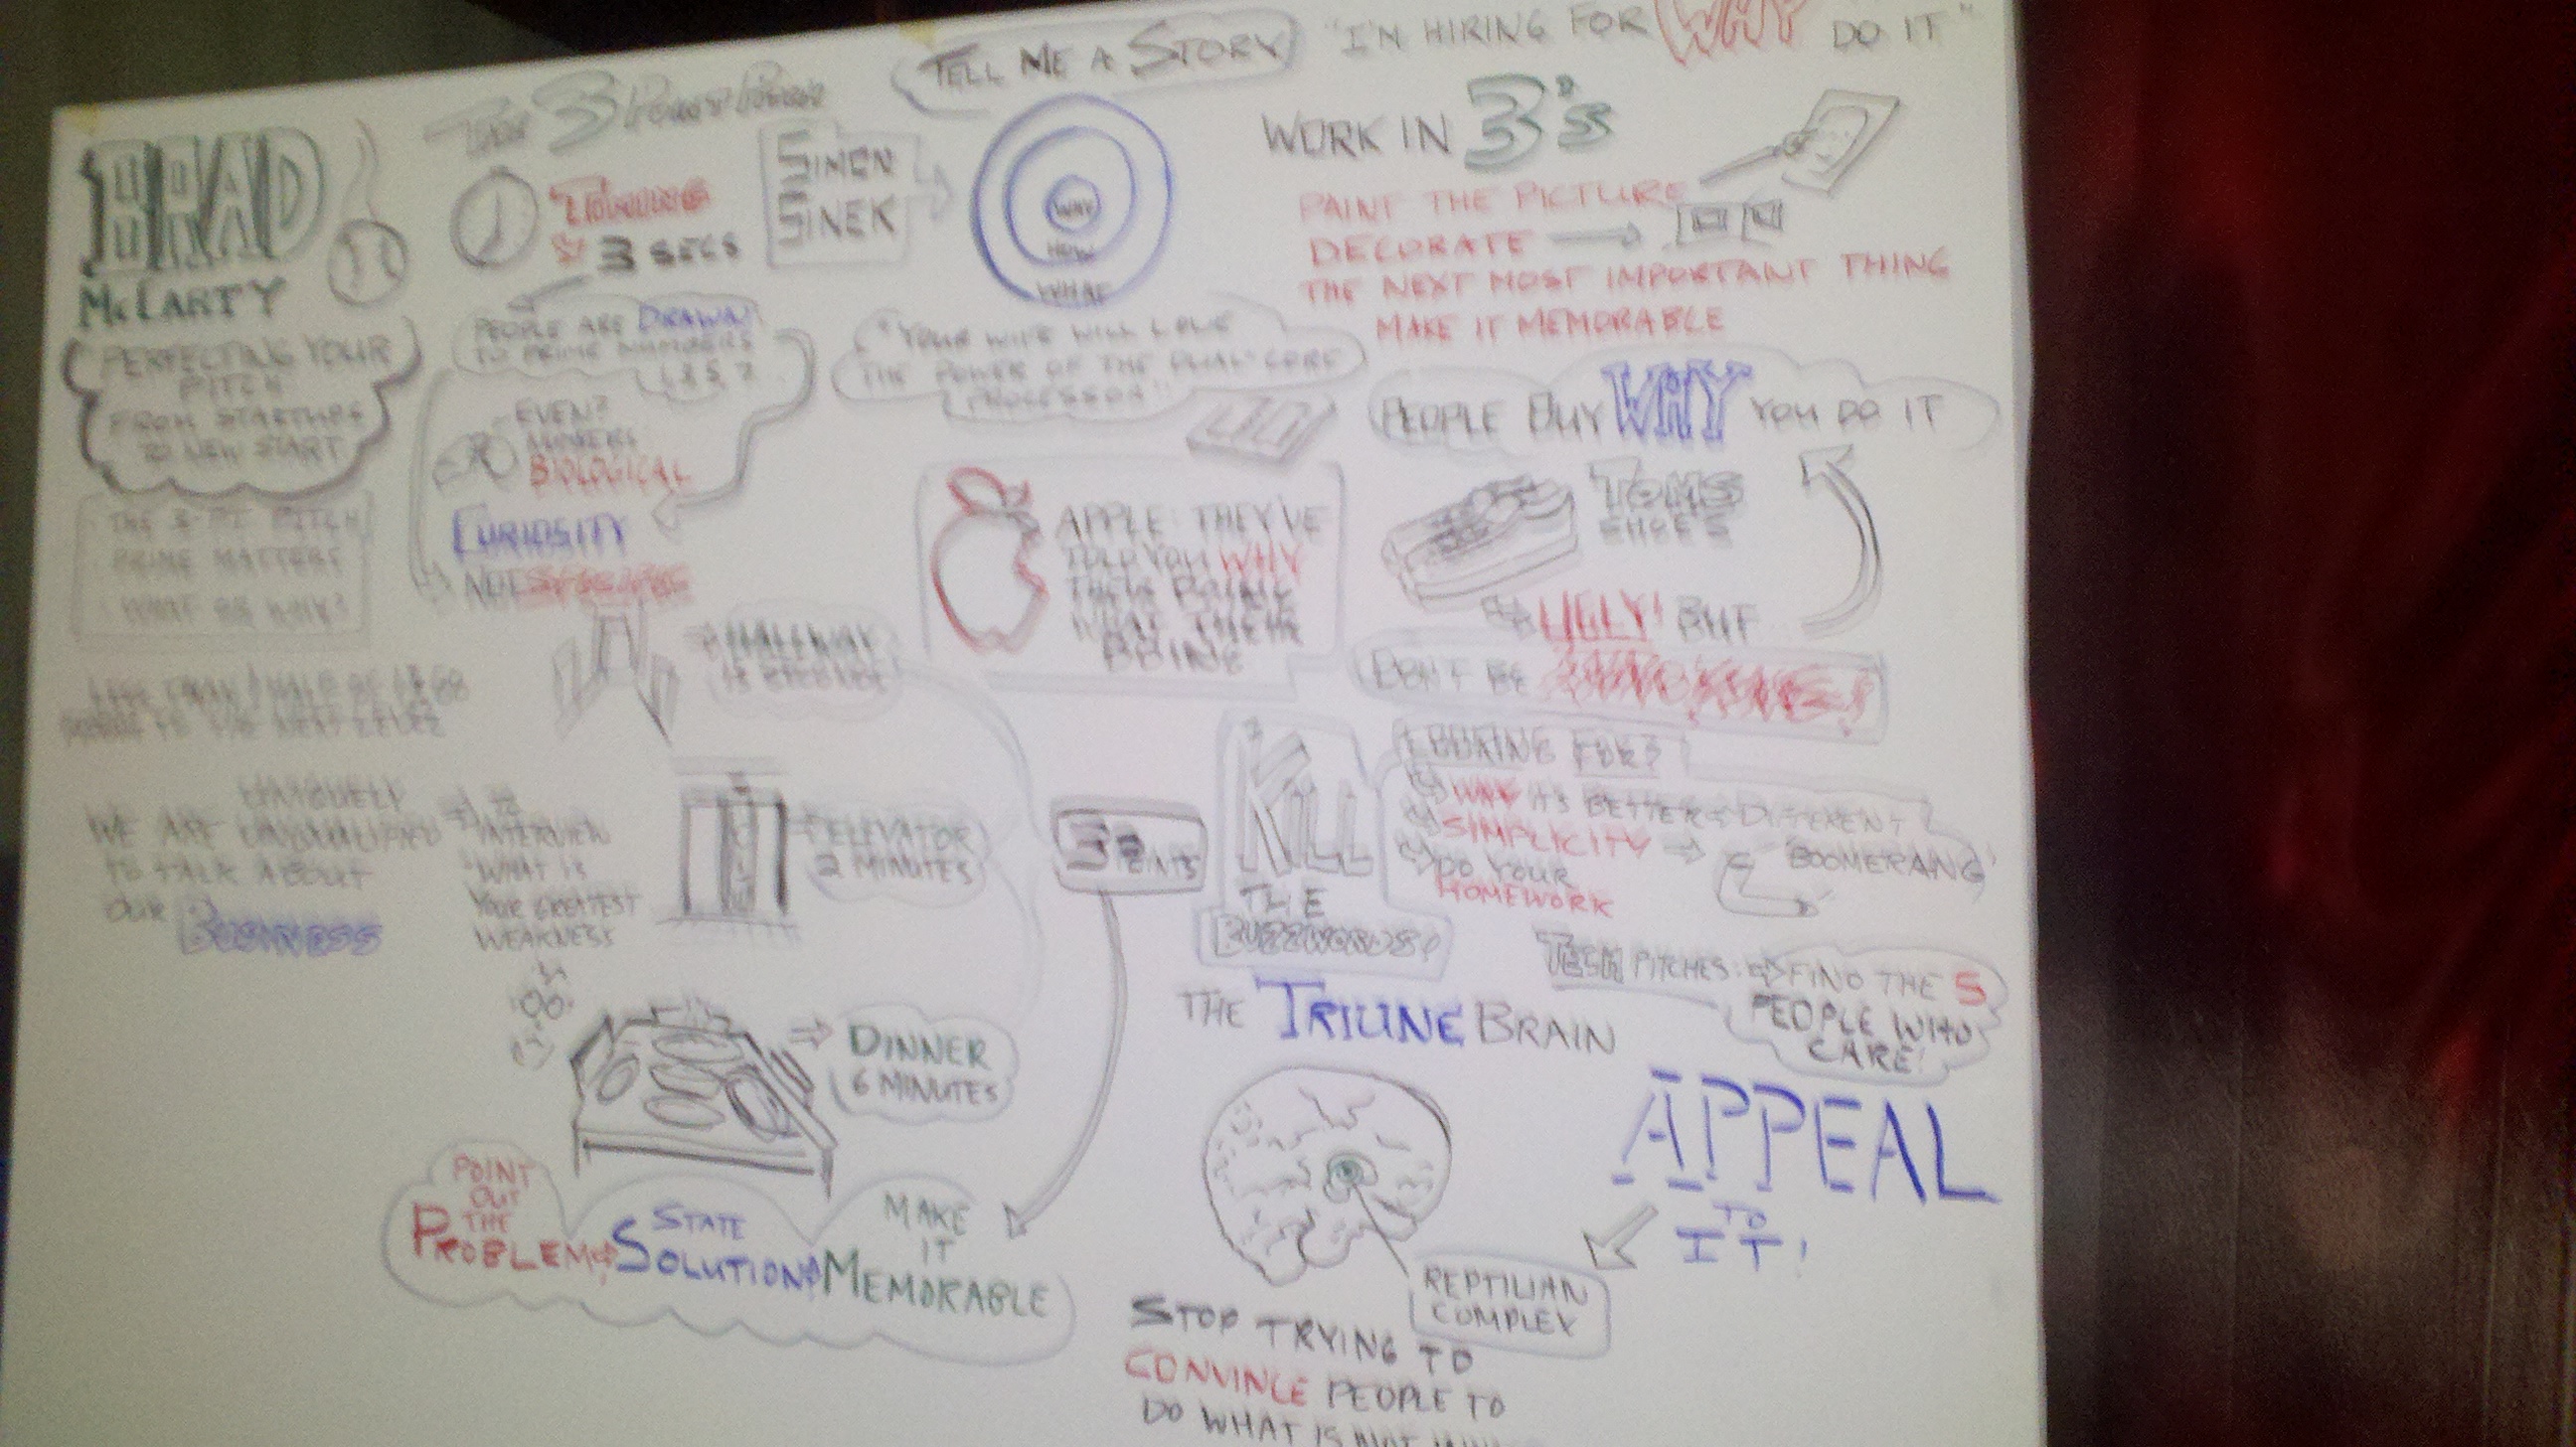 BRAD
McCARTY
PERFECTING YOUR
PITCH
FROM STARTUPS
TO NEW START
THE 3-PT PITCH
PRIME MATTERS
WHAT OR WHY?
THE 3
TIMING
3 SECS
PEOPLE ARE DRAWN
TO PRIME NUMBERS
EVEN?
BIOLOGICAL
CURIOSITY
NOT
HALLWAY
TO THE NEXT LEVEL
UNIQUELY
WE ARE UNQUALIFIED
TO TALK ABOUT
OUR BUSINESS
INTERVIEW
"WHAT IS
YOUR GREATEST
WEAKNESS
ELEVATOR
2 MINUTES
DINNER
6 MINUTES
3 POINTS
POINT
OUT
THE
PROBLEM &
STATE
SOLUTION &
MAKE
IT
MEMORABLE
TELL ME A STORY
"I'M HIRING FOR WHY DO IT"
SIMON
SINEK
WHY
HOW
WHAT
"YOUR WIFE WILL LOVE
THE POWER OF THE DUAL CORE
PROCESSOR"
WORK IN 3's
PAINT THE PICTURE
DECORATE
THE NEXT MOST IMPORTANT THING
MAKE IT MEMORABLE
PEOPLE BUY WHY YOU DO IT
APPLE: THEY'VE
TOLD YOU WHY
DOING
TOMS
SHOES
UGLY! BUT
DON'T BE
KILL
THE
BUZZWORDS!
LOOKING FOR?
WHY IT'S BETTER & DIFFERENT
SIMPLICITY
"BOOMERANG"
DO YOUR
HOMEWORK
TECH PITCHES: FIND THE 5
PEOPLE WHO
CARE!
THE TRIUNE BRAIN
REPTILIAN
COMPLEX
APPEAL
TO
IT!
STOP TRYING TO
CONVINCE PEOPLE TO
DO WHAT IS NOT